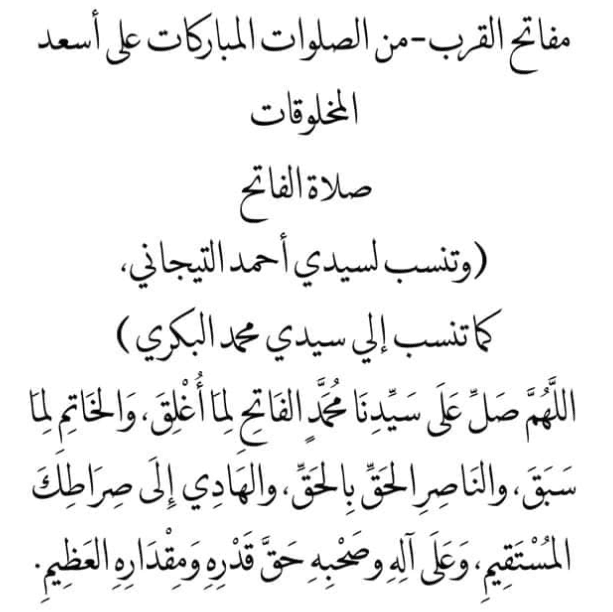 مفاتح القرب-من الصلوات المباركات على أسعد
المخلوقات
صلاة الفاتح
(وتنسب لسيدي أحمد التيجاني،
كما تنسب إلي سيدي محمد البكري)
اللَّهُمَّ صَلِّ عَلَى سَيِّدِنَا مُحَمَّدٍ الفَاتِحِ لِمَا أُغْلِقَ، وَالخَاتِمِ لِمَا
سَبَقَ، والنَاصِرِ الحَقِّ بِالحَقِّ، والهَادِي إِلَى صِرَاطِكَ
المُسْتَقِيمِ، وَعَلَى آلِهِ وصَحْبِهِ حَقَّ قَدْرِهِ وَمِقْدَارِهِ العَظِيمِ.